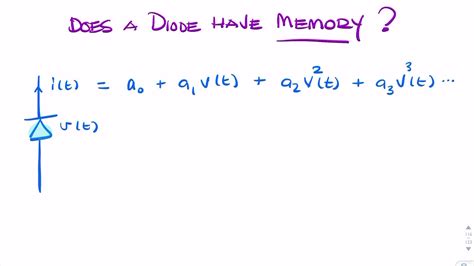 DOES A DIODE HAVE MEMORY ?
i(t) = a₀ + a₁ v(t) + a₂ v²(t) + a₃ v³(t) ...
v(t)